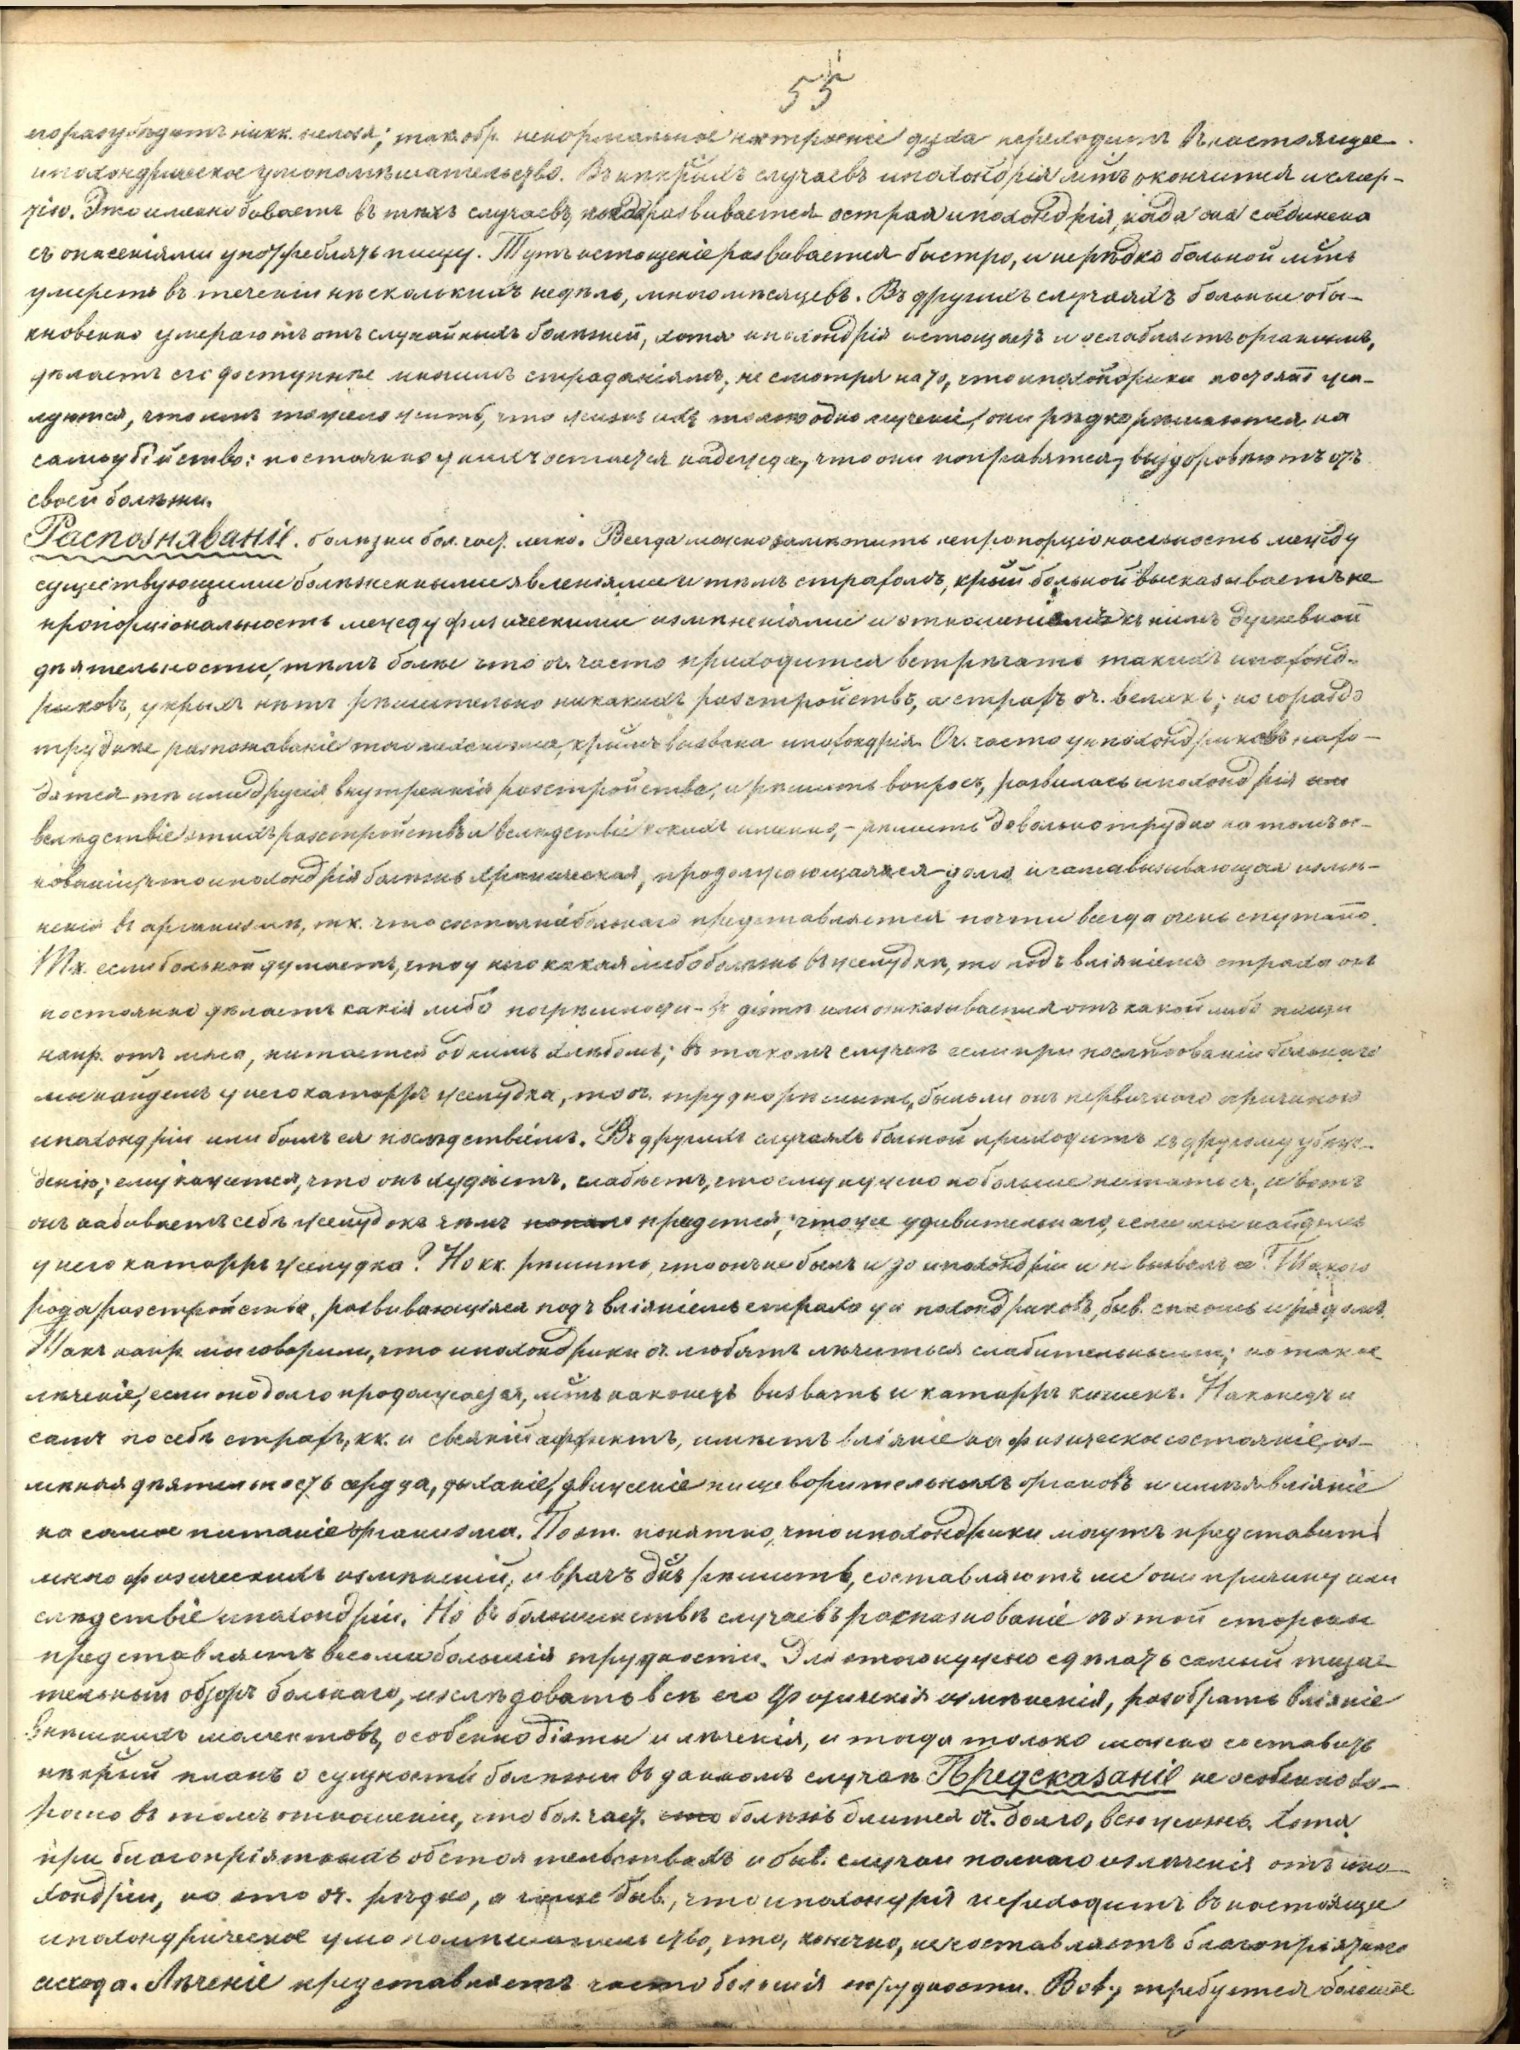 55
его разубѣдить никк. нельзя; так. обр. ненормальное настроеніе духа переходитъ въ настоящее
ипохондрическое умопомѣшательство. Въ нѣкрыхъ случаевъ ипохондрія мжтъ окончится и смер-
тію. Это именно бываетъ въ тѣхъ случаевъ, когда развивается острая ипохондрія, когда она соединена
съ опасеніями употреблять пищу. Тутъ истощеніе развивается быстро, и нерѣдко больной мжтъ
умереть въ теченіи нѣсколькихъ недѣль, много мѣсяцевъ. Въ другихъ случаяхъ больные обы-
кновенно умираютъ отъ случайныхъ болѣзней, хотя ипохондрія истощаетъ и ослабляетъ организмъ,
дѣлаетъ его доступнѣе инымъ страданіямъ; не смотря на то, что ипохондрики постоянно жа-
луются, что имъ тяжело жить, что жизнь ихъ только одно мученіе, они рѣдко рѣшаются на
самоубійство: постоянно у нихъ остается надежда, что они поправятся, выздоровѣютъ отъ
своей болѣзни.
Распознаваніе. болѣзни бол. част. легко. Всегда можно замѣтить непропорціональность между
существующими болѣзненными явленіями и тѣмъ страхомъ, крый больной высказываетъ не
пропорціональность между физическими измѣненіями и отношеніемъ къ нимъ душевной
дѣятельности, тѣмъ болѣе что оч. часто приходится встрѣчать такихъ ипохонд-
риковъ, у крыхъ нѣтъ рѣшительно никакихъ разстройствъ, а страхъ оч. великъ; но гораздо
труднѣе распознаваніе того, крымъ вызвана ипохондрія. Оч. часто у ипохондриковъ нахо-
дятся тѣ или другія внутреннія разстройства, и рѣшить вопросъ, развилась ипохондрія
вслѣдствіе этихъ разстройствъ и вслѣдствіе какихъ именно, - рѣшить довольно трудно на томъ ос-
нованіи, что ипохондрія болѣзнь хроническая, продолжающаяся долго и сама вызывающая измѣ-
ненія въ организмѣ, тк. что состояніе больнаго представляется почти всегда очень спутано.
Тк. если больной думаетъ, что у него какая либо болѣзнь въ желудкѣ, то подъ вліяніемъ страха онъ
постоянно дѣлаетъ какія либо погрѣшности въ діэтѣ или отказывается отъ какой либо пищи
напр. отъ мяса, питается однимъ хлѣбомъ; въ такомъ случаѣ если при изслѣдованіи больнаго
мы найдемъ у него катарръ желудка, то оч. трудно рѣшить, былъ ли онъ первичною причиною
ипохондріи или былъ ея послѣдствіемъ. Въ другихъ случаяхъ больной приходитъ къ другому убѣж-
денію; ему кажется, что онъ худѣетъ, слабѣетъ, что ему нужно побольше питаться, и вотъ
онъ набиваетъ себѣ желудокъ чѣмъ попало придется; что же удивительнаго, если мы найдемъ
у него катарръ желудка? Но кк. рѣшить, что онъ не былъ и до ипохондріи и не вызвалъ ее? Такого
рода разстройства, развивающіяся подъ вліяніемъ страха у ипохондриковъ, быв. сплошь и рядомъ.
Такъ напр. мы говорили, что ипохондрики оч. любятъ лѣчиться слабительными; но такое
лѣченіе, если оно долго продолжается, мжтъ наконецъ вызвать и катарръ кишекъ. Наконецъ и
самъ по себѣ страхъ, кк. и всякій аффектъ, имѣетъ вліяніе на физическое состояніе, из-
мѣняя дѣятельность сердца, дыханіе, движеніе пищеворительныхъ органовъ и имѣя вліяніе
на самое питаніе организма. Поэт. понятно, что ипохондрики могутъ представить
много физическихъ измѣненій, и врачъ дженъ рѣшить, составляютъ ли они причину или
слѣдствіе ипохондріи. Но въ большинствѣ случаевъ распознованіе съ этой стороны
представляетъ весьма большія трудности. Для этого нужно сдѣлать самый тща-
тельный обзоръ больнаго, изслѣдовать всѣ его физическія измѣненія, разобрать вліяніе
внѣшнихъ моментовъ, особенно діэты и лѣченія, и тогда только можно составить
нѣкрый планъ о сущности болѣзни въ данномъ случаѣ. Предсказаніе не особенно хо-
рошо въ томъ отношеніи, что бол. част. болѣзнь длится оч. долго, всю жизнь. Хотя
при благопріятныхъ обстоятельствахъ и быв. случаи полнаго излѣченія отъ ипо-
хондріи, но это оч. рѣдко, а чаще быв., что ипохондрія переходитъ въ настоящее
ипохондрическое умопомѣшательство, что, конечно, не составляетъ благопріятнаго
исхода. Лѣченіе представляетъ часто большія трудности. Вотъ требуется большое